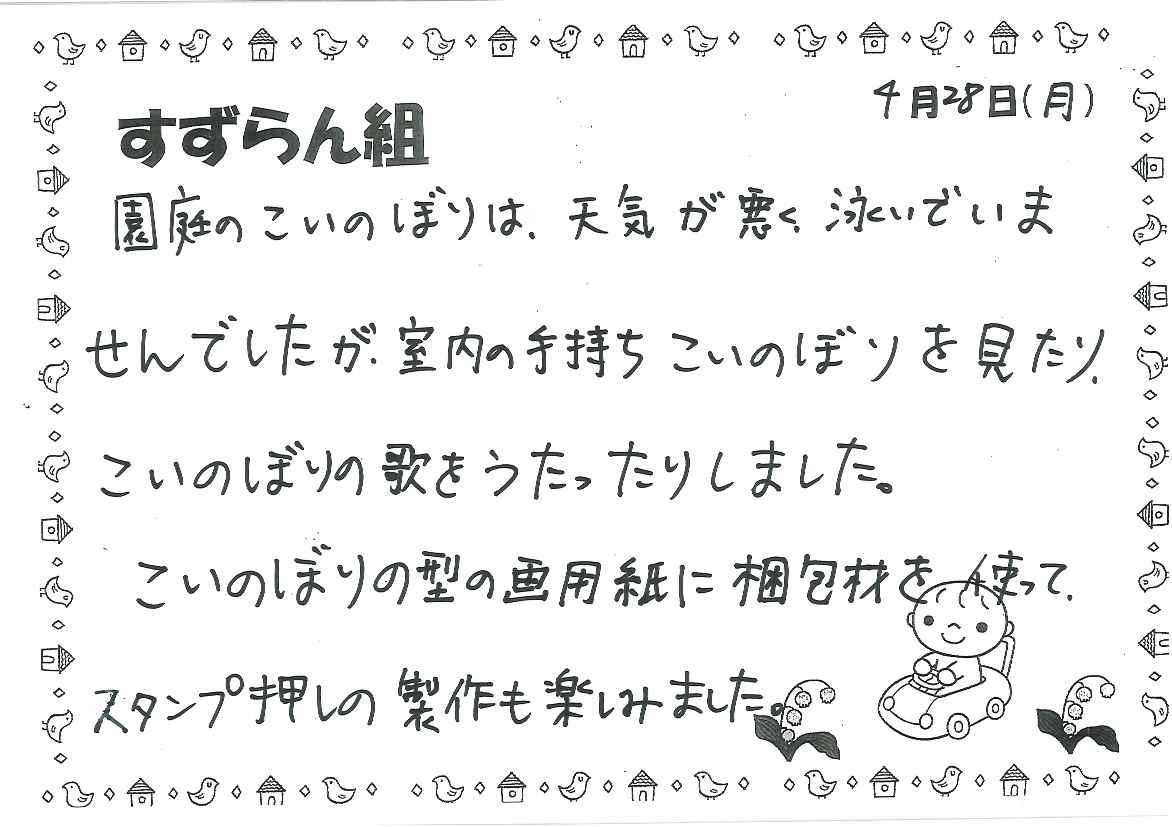 4月28日(月)
すずらん組
園庭のこいのぼりは、天気が悪く、泳いでいま
せんでしたが、室内の手持ちこいのぼりを見たり、
こいのぼりの歌をうたったりしました。
こいのぼりの型の画用紙に梱包材を使って、
スタンプ押しの製作も楽しみました。